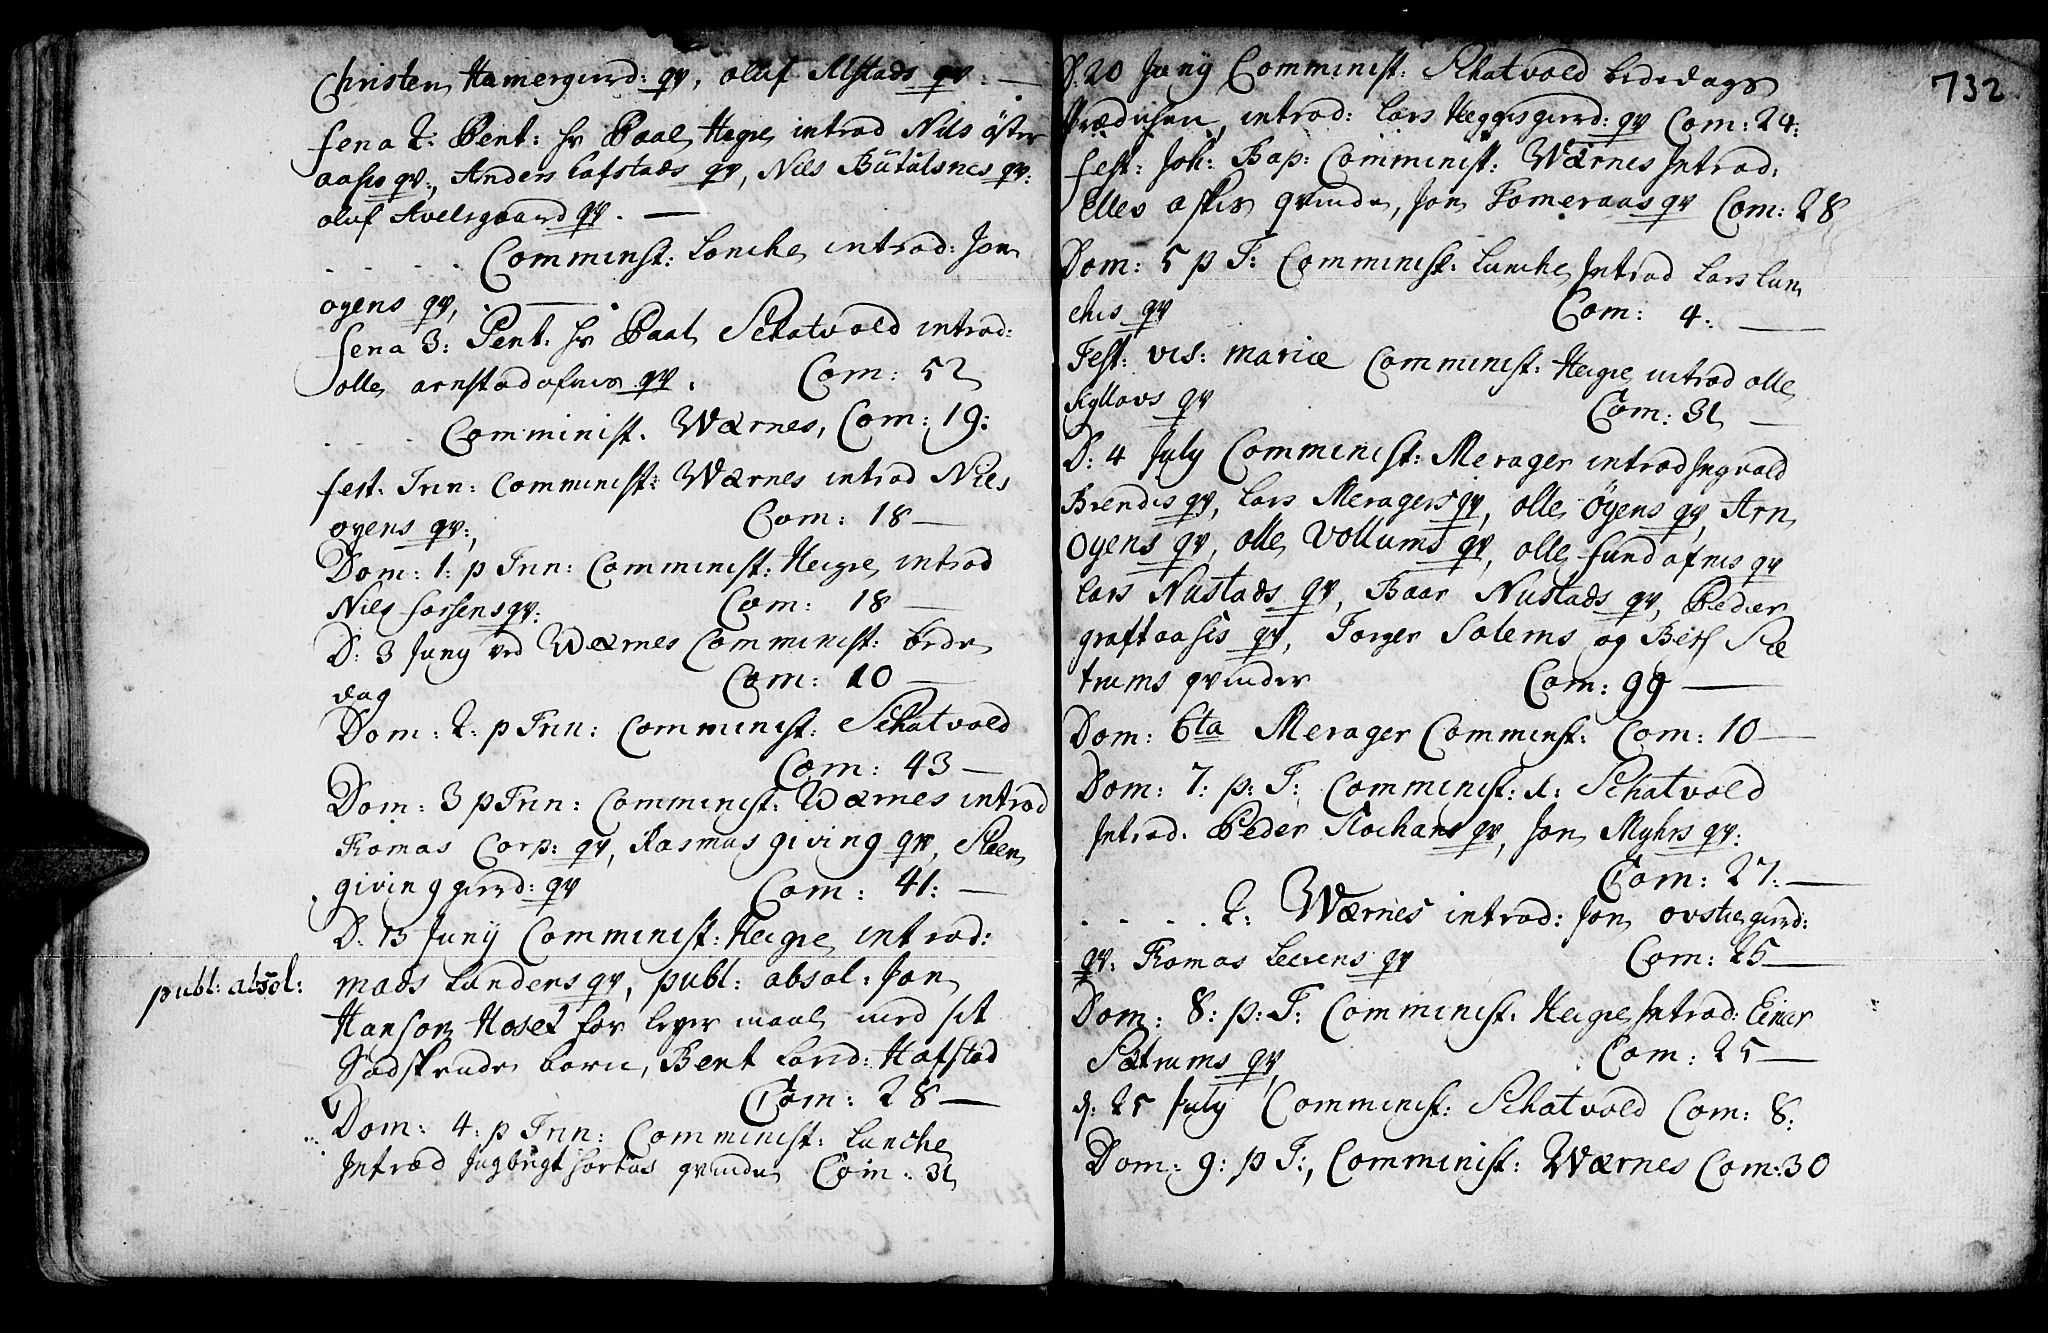 Christen Hamergurd: qv, oluf Alstads qv. —
fena 2: Pent: hr Paal Hegre introd Nils öster
aases qv:, Anders Lafstads qv, Nils Butulsnes qv:
oluf Avelsgaard qv. —
. . . . Comminist: Lonche introd: Jon
oyens qv,
fena 3: Pent: hr Paal Schatvold introd:
olle arnstad ofnes qv. Com: 52
. . . . Comminist. Wærnes, Com: 19:
fest. Trin: Comminist: Wærnes introd Nils
oyens qv:, Com: 18 —
Dom: 1: p Trin: Comminist: Hegre introd
Nils forsens qv: Com: 18 —
D: 3 Juny ved Wærnes Comminist: bede
dag Com: 10 —
Dom: 2: p Trin: Comminist: Schatvold
Com: 43 —
Dom: 3 p Trin: Comminist: Wærnes introd
Tomas Corp: qv, Rasmus giving qv, Steen
giving gurd: qv Com: 41: —
D: 13 Junij Comminist: Hegre introd:
publ: absol: mads Lunders qv, publ: absol: Jon
Hanson Hoset for leyermaal med sit
Sødskende børn, Berit Lorid: Hafstad
Com: 28 —
Dom: 4: p Trin: Comminist: Lunche
Introd Ingbrigt hortus qvinde Com: 31
732
D. 20 Junij Comminist: Schatvold bededags
Prædichen, introd: Lars Heggisgurd: qv Com: 24:
fest: Joh: Bap: Comminist: Wærnes Introd:
Elles aschis qvinde, Jon Fomeraas qv Com: 28
Dom: 5 p T: Comminist: Lunche Introd Lars Lun
ches qv Com: 4: —
Fest: vis: mariæ Comminist: Hegre introd olle
Kyllovs qv Com: 31 —
D: 4 July Comminist: Merager introd Ingvald
Brendis qv, Lars Meragers qv, olle Öyens qv, Arn
Oyens qv, olle Vollums qv, olle sundofnes qv
Lars Nustads qv, Baar Nustads qv, Peder
graftaasis qv, Torger Solems og Berf Sæ
trums qvinder Com: 99 —
Dom: 6ta Merager Comminst: Com: 10 —
Dom: 7: p: T: Comminist: d: Schatvold
Introd. Peder Stochans qv, Jon Myhrs qv:
Com: 27: —
. . . . 2: Wærnes introd: Jon ovstegurd:
qv: Tomas Leerens qv Com: 25 —
Dom: 8: p: T: Comminist: Hegre Introd: Einer
Sætrums qv, Com: 25 —
d: 25 July Comminist: Schatvold Com: 8:
Dom: 9: p T:, Comminist: Wærnes Com: 30